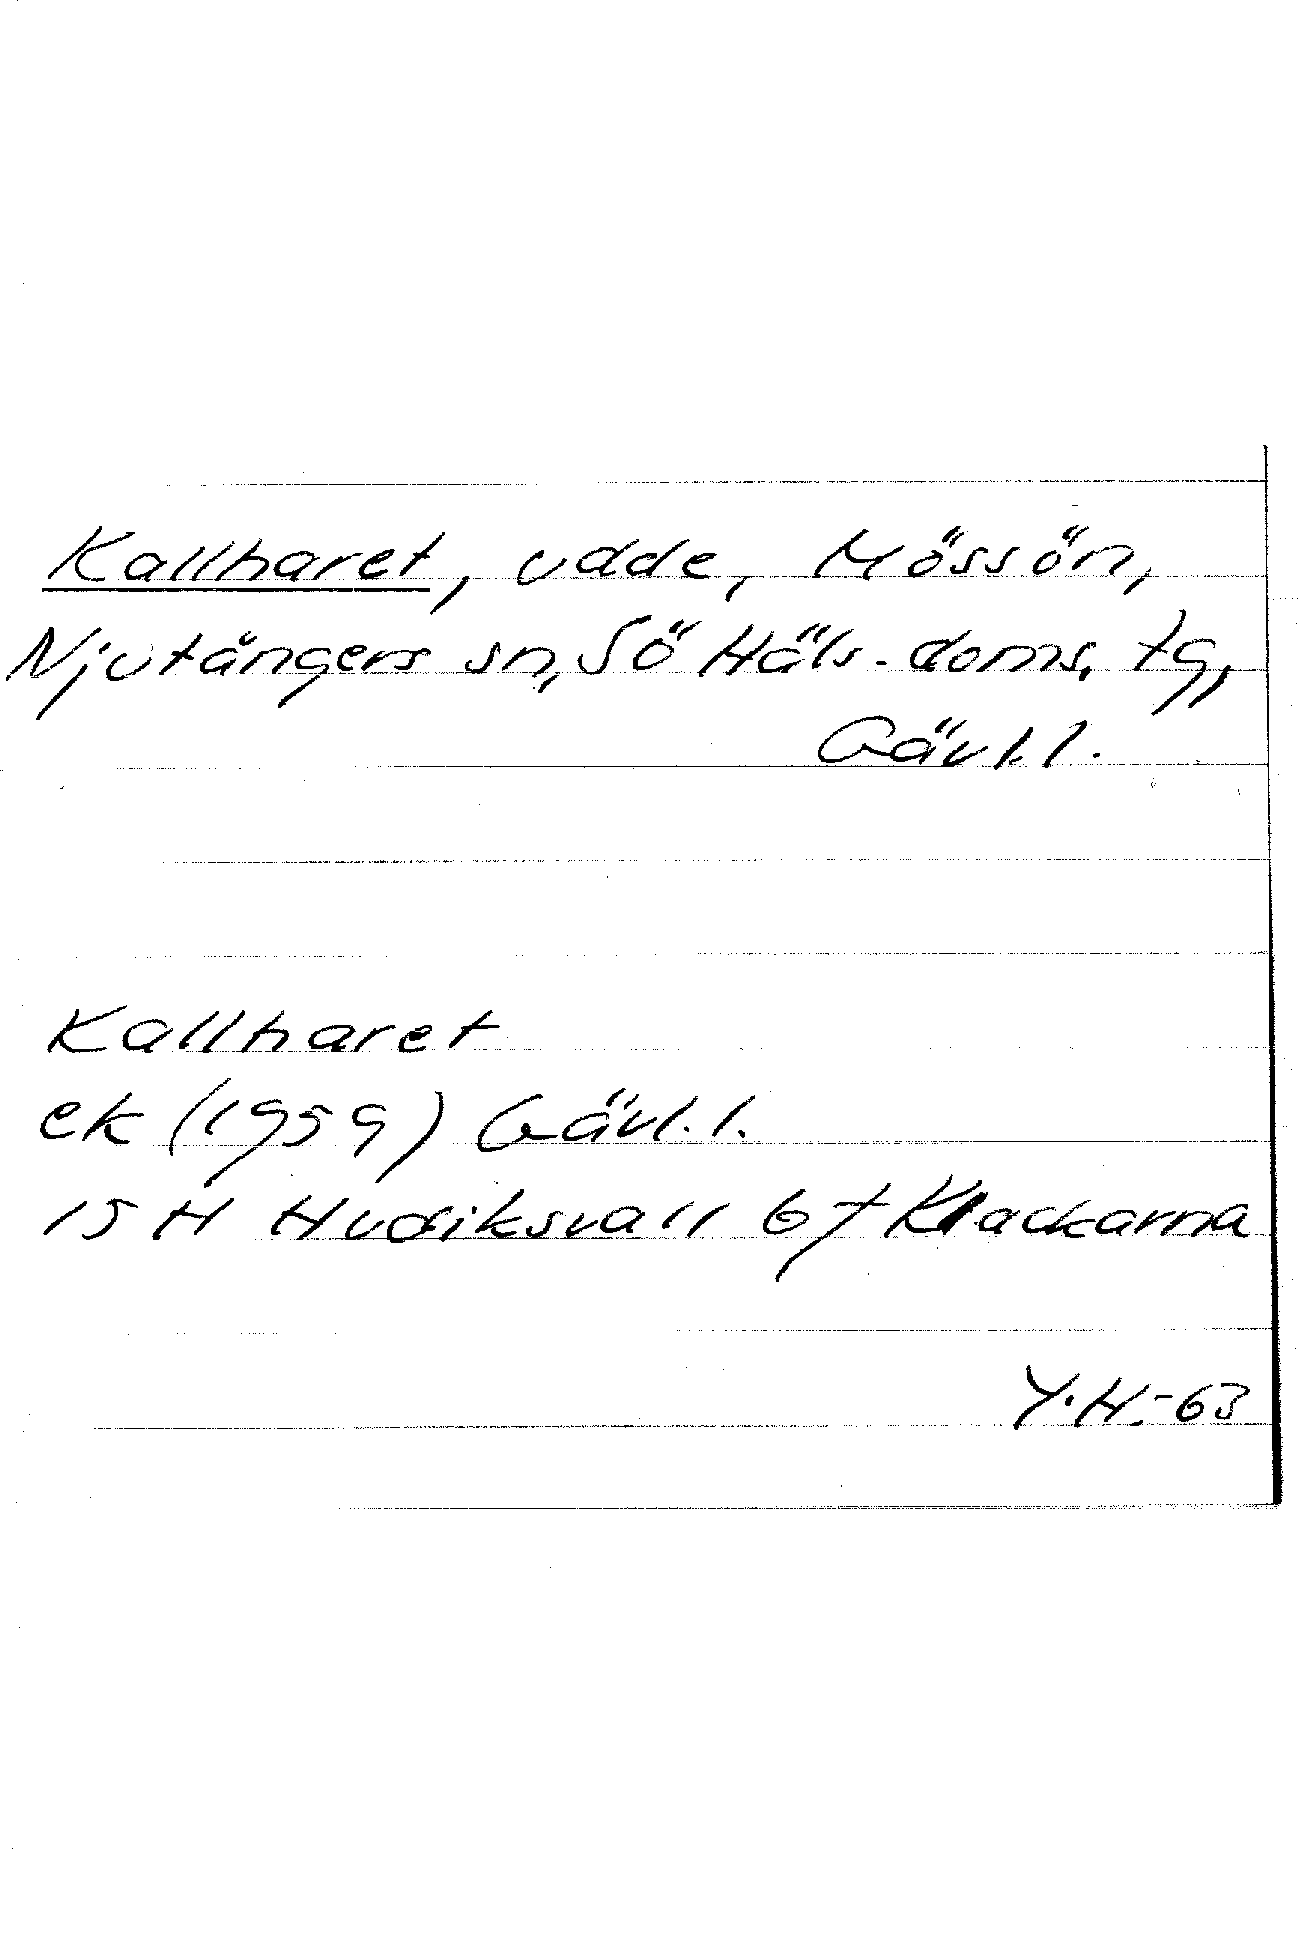 Kallharet, udde, Mössön,
Njutångers sn, Sö Häls. doms. tg,
Gävl. l.
Kallharet
ek (1959) Gävl. l.
15 H Hudiksvall 6 f Klackarna
Y. H. -63